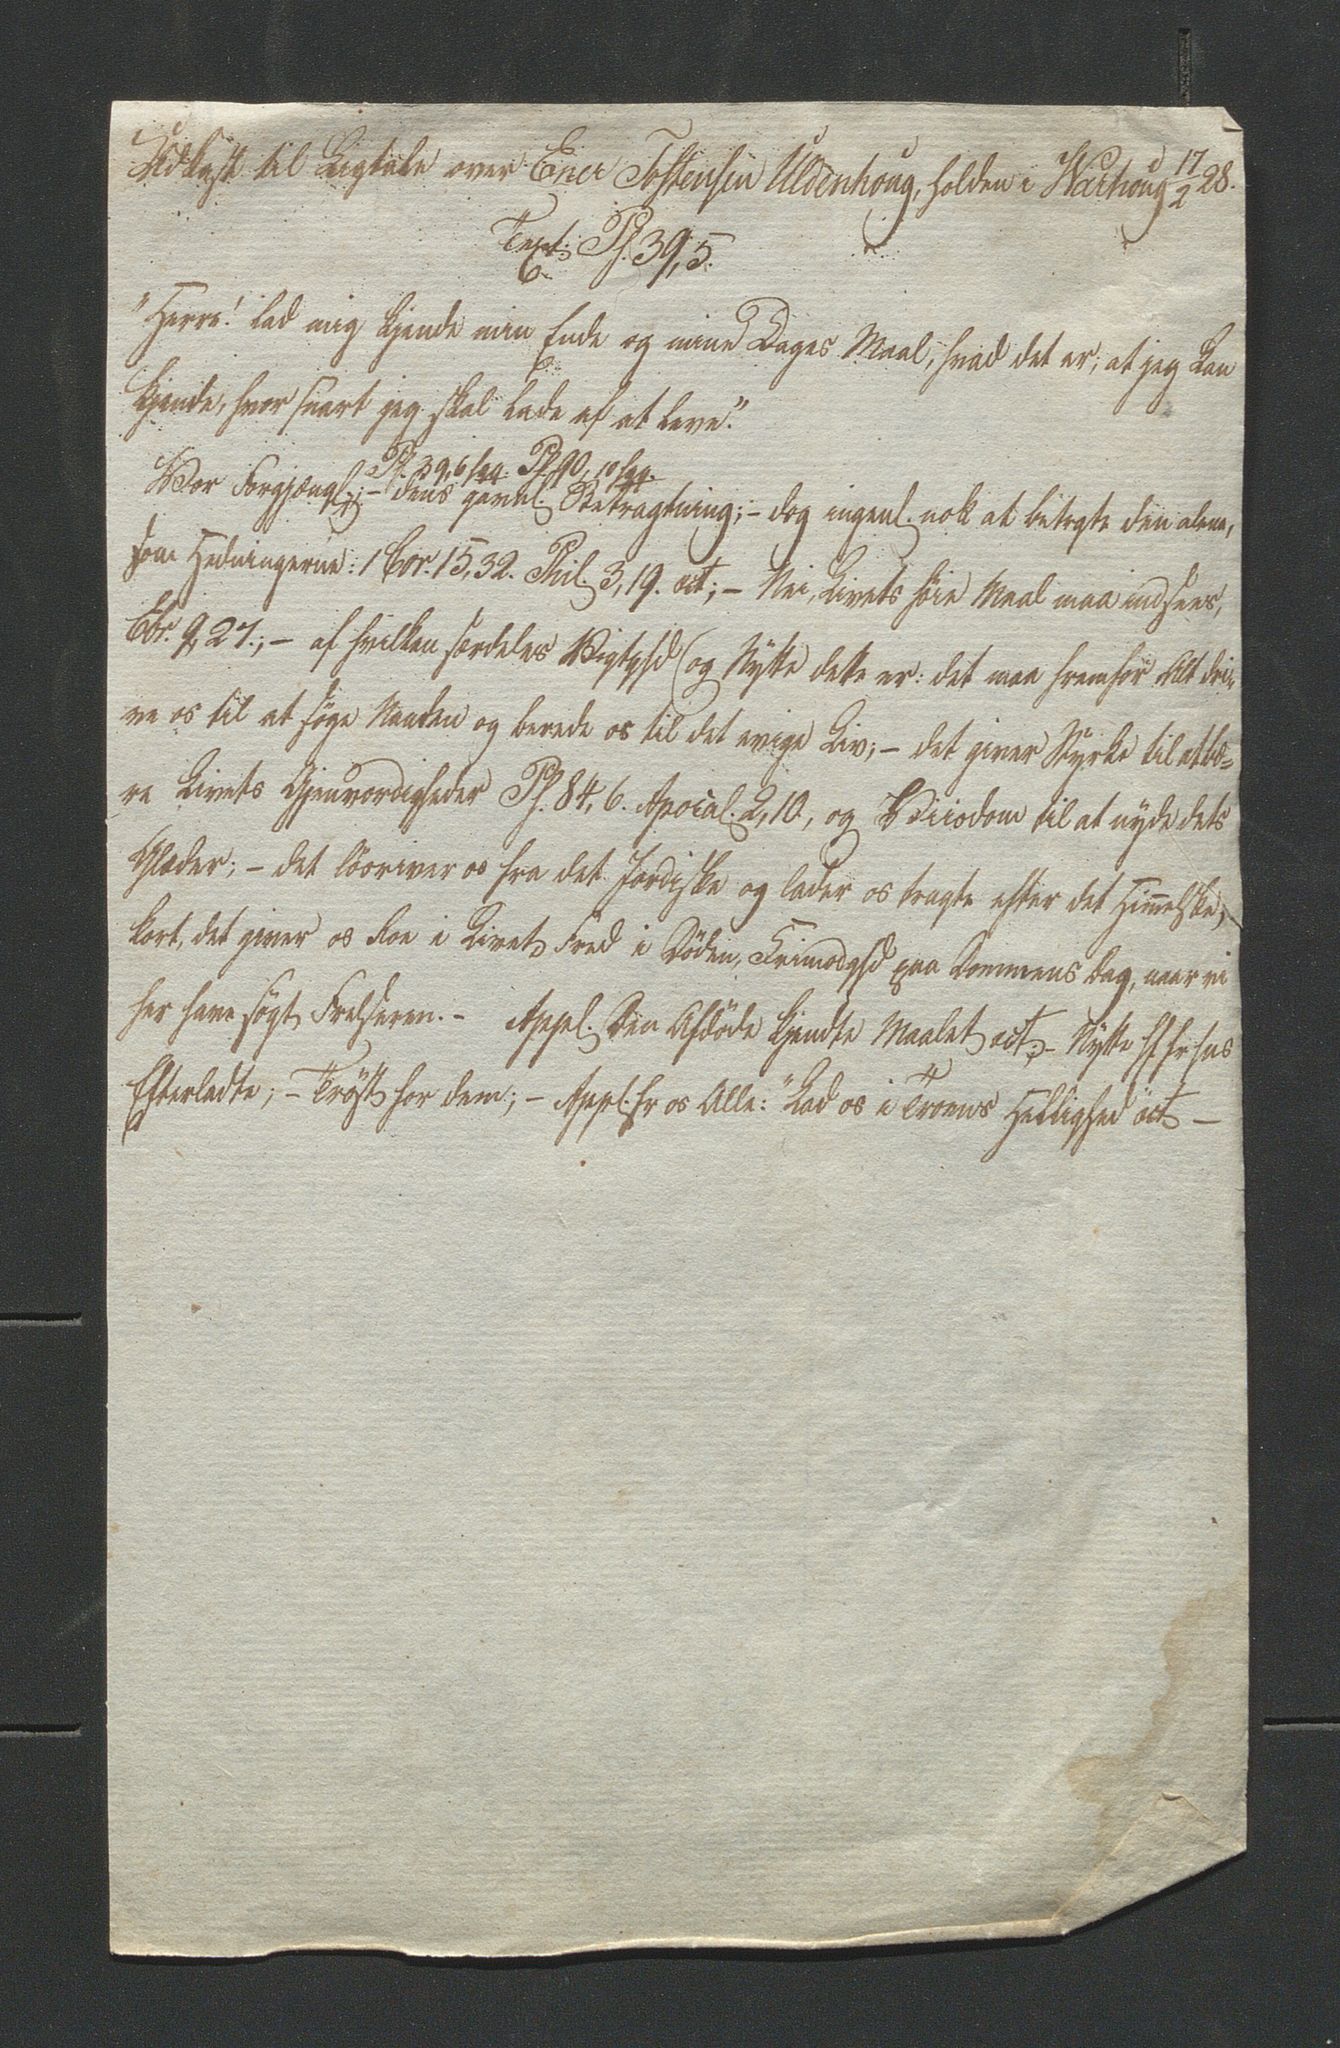 Udkast til Ligtale over Ener Tostensen Uldenhoug, holden i Warhoug 17/2 28.
Text: Ps. 39,5.
"Herre! lad mig kjende min Ende og mine Dages Maal, hvad det er; at jeg kan
kjende, hvor snart jeg skal lade af at leve."
Ps. 39,6 sqq. Ps. 90, 10 sqq.
Vor Forgjængl.; – dens gavnl. Betragtning; – dog ingenl. nok at betragte den alene,
som Hedningerne: 1 Cor. 15,32. Phil. 3,19. oct; – Nei, Livets høie Maal maa indsees,
Ebr. 9,27.; – af hvilken særdeles Vigtghd og Nytte dette er: det maa fremfor Alt dri-
ve os til at søge Naaden og berede os til det evige Liv; – det giver Styrke til at bæ-
re Livets Gjenvordigheder Ps. 84,6. Apocal. 2,10, og Viisdom til at nyde dets
Glæder; – det løsriver os fra det Jordiske og lader os tragte efter det Himmelske,
kort, det giver os Roe i Livet, Fred i Døden, Frimodghd paa Dommens Dag, naar vi
her have søgt Frelseren. – Appl. Den Afdøde kjendte Maalet oct. – Nytte hans
Efterladte; – Trøst for dem; – Appl. fr os Alle: "Lad os i Troens Hellighed oct –